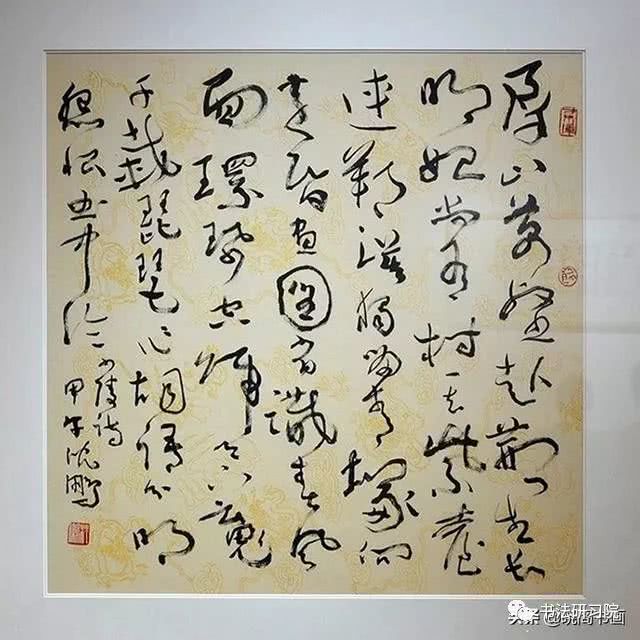 群山万壑赴荆门生长
明妃尚有村一去紫台
连朔漠独留青冢向
黄昏画图省识春风
面環珮空归魂
千载琵琶作胡语分明
怨恨曲中论 少陵诗
甲午沈鹏
书法研习院